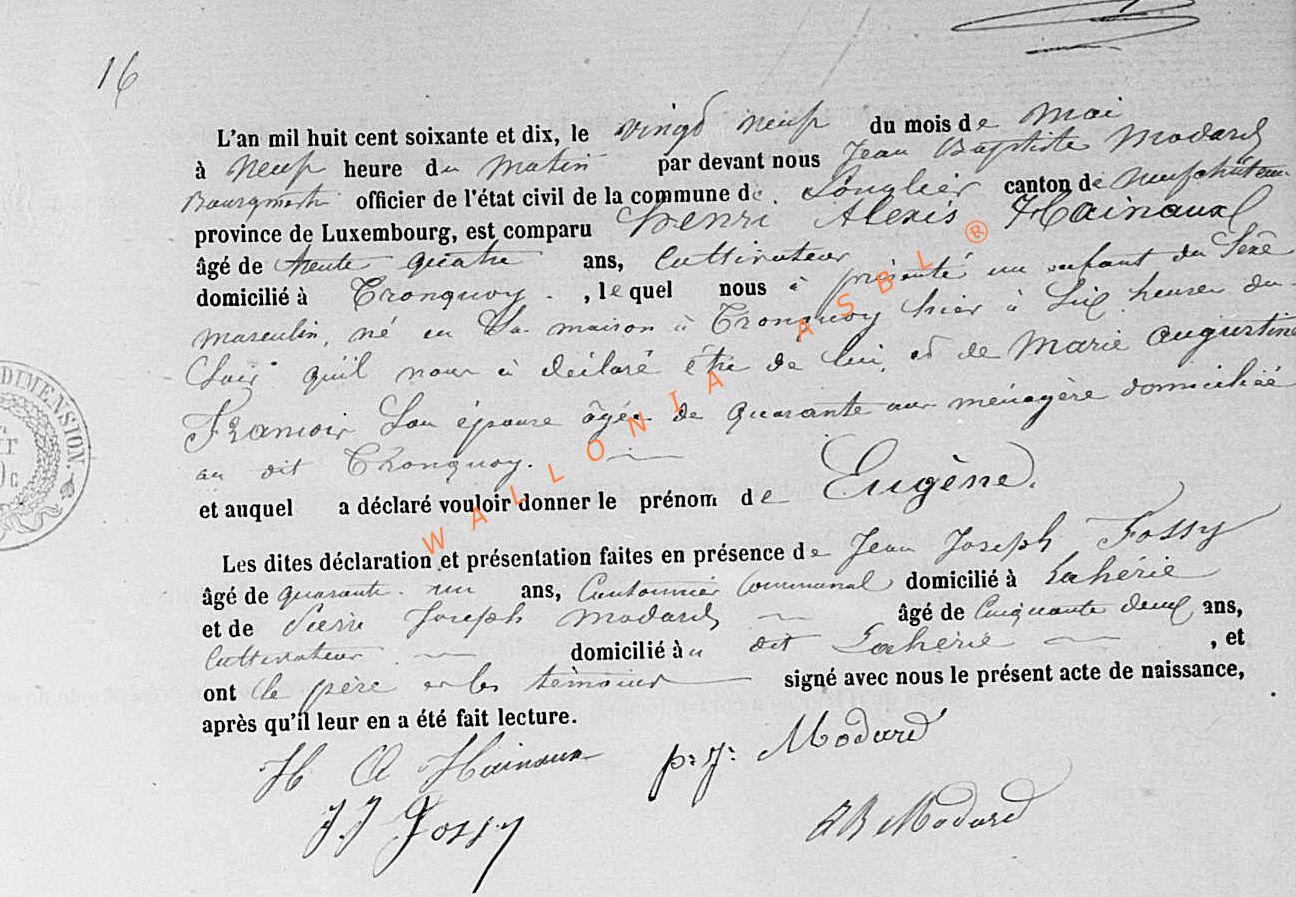 16
L'an mil huit cent soixante et dix, le vingt neuf du mois de Mai
à Neuf heure du Matin par devant nous Jean Baptiste Modard
Bourgmestre officier de l'état civil de la commune de Longlier canton de Neufchateau
province de Luxembourg, est comparu Henri Alexis Hainaux
âgé de trente quatre ans, Cultivateur
domicilié à Tronquoy , lequel nous à présenté un enfant du Sexe
masculin, né en Sa maison à Tronquoy hier à Six heures du
Soir qu'il nous à déclaré être de lui, et de Marie Augustine
François Son épouse âgée de quarante ans ménagère domiciliée
au dit Tronquoy.
et auquel a déclaré vouloir donner le prénom de Eugène.
Les dites déclaration et présentation faites en présence de Jean Joseph Fossy
âgé de quarante un ans, Cantonnier Communal domicilié à Laherie
et de Pierre Joseph Modard âgé de Cinquante deux ans,
Cultivateur domicilié au dit Laherie , et
ont le père et les témoins signé avec nous le présent acte de naissance,
après qu'il leur en a été fait lecture.
H A Hainaux p. j. Modard
J J Fossy JB Modard
DIMENSION.
WALLONIA ASBL ®